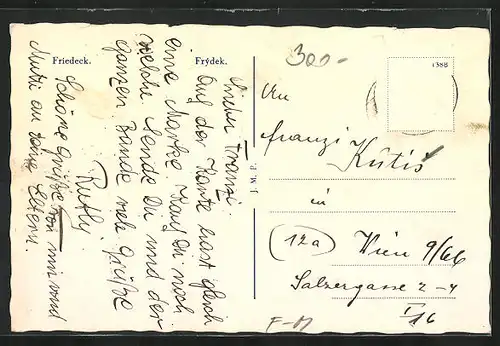 Friedeck. Frýdek.
Lieber Franzi.
Auf der Karte hast gleich
eine Marke. Hast Du noch
welche Sende Du und der
ganzen Bande viele Grüsse
Rudly.
Schöne Grüße von mir und
Mutti an Deine Eltern.
300-
1388
An
Franzi Kutis
in
12a Wien 9/66
Salzergasse 2-4
I/16